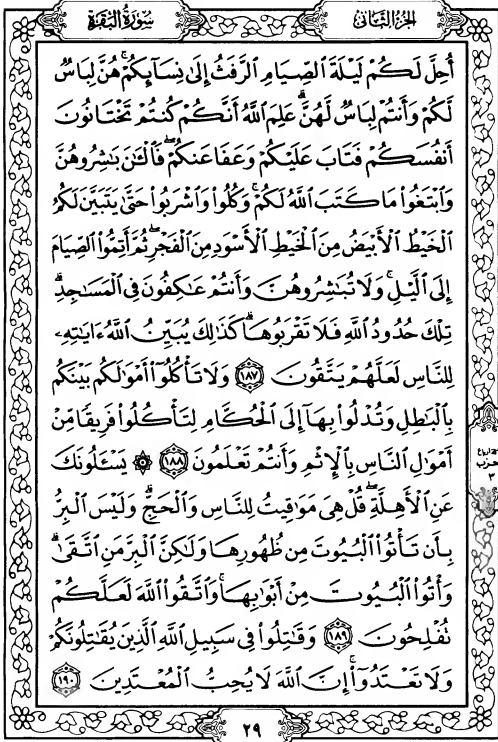 سُورَةُ البَقَرَةِ
الجزء الثاني
أُحِلَّ لَكُمْ لَيْلَةَ ٱلصِّيَامِ ٱلرَّفَثُ إِلَىٰ نِسَآئِكُمْ ۚ هُنَّ لِبَاسٌ
لَّكُمْ وَأَنتُمْ لِبَاسٌ لَّهُنَّ ۗ عَلِمَ ٱللَّهُ أَنَّكُمْ كُنتُمْ تَخْتَانُونَ
أَنفُسَكُمْ فَتَابَ عَلَيْكُمْ وَعَفَا عَنكُمْ ۖ فَٱلْـَٰٔنَ بَـٰشِرُوهُنَّ
وَٱبْتَغُوا۟ مَا كَتَبَ ٱللَّهُ لَكُمْ ۚ وَكُلُوا۟ وَٱشْرَبُوا۟ حَتَّىٰ يَتَبَيَّنَ لَكُمُ
ٱلْخَيْطُ ٱلْأَبْيَضُ مِنَ ٱلْخَيْطِ ٱلْأَسْوَدِ مِنَ ٱلْفَجْرِ ۖ ثُمَّ أَتِمُّوا۟ ٱلصِّيَامَ
إِلَى ٱلَّيْلِ ۚ وَلَا تُبَـٰشِرُوهُنَّ وَأَنتُمْ عَـٰكِفُونَ فِى ٱلْمَسَـٰجِدِ ۗ
تِلْكَ حُدُودُ ٱللَّهِ فَلَا تَقْرَبُوهَا ۗ كَذَٰلِكَ يُبَيِّنُ ٱللَّهُ ءَايَـٰتِهِۦ
لِلنَّاسِ لَعَلَّهُمْ يَتَّقُونَ ١٨٧ وَلَا تَأْكُلُوٓا۟ أَمْوَٰلَكُم بَيْنَكُم
بِٱلْبَـٰطِلِ وَتُدْلُوا۟ بِهَآ إِلَى ٱلْحُكَّامِ لِتَأْكُلُوا۟ فَرِيقًا مِّنْ
أَمْوَٰلِ ٱلنَّاسِ بِٱلْإِثْمِ وَأَنتُمْ تَعْلَمُونَ ١٨٨ ۞ يَسْـَٔلُونَكَ
عَنِ ٱلْأَهِلَّةِ ۖ قُلْ هِىَ مَوَٰقِيتُ لِلنَّاسِ وَٱلْحَجِّ ۗ وَلَيْسَ ٱلْبِرُّ
بِأَن تَأْتُوا۟ ٱلْبُيُوتَ مِن ظُهُورِهَا وَلَـٰكِنَّ ٱلْبِرَّ مَنِ ٱتَّقَىٰ ۗ
وَأْتُوا۟ ٱلْبُيُوتَ مِنْ أَبْوَٰبِهَا ۚ وَٱتَّقُوا۟ ٱللَّهَ لَعَلَّكُمْ
تُفْلِحُونَ ١٨٩ وَقَـٰتِلُوا۟ فِى سَبِيلِ ٱللَّهِ ٱلَّذِينَ يُقَـٰتِلُونَكُمْ
وَلَا تَعْتَدُوٓا۟ ۚ إِنَّ ٱللَّهَ لَا يُحِبُّ ٱلْمُعْتَدِينَ ١٩٠
حزب
٣
٢٩